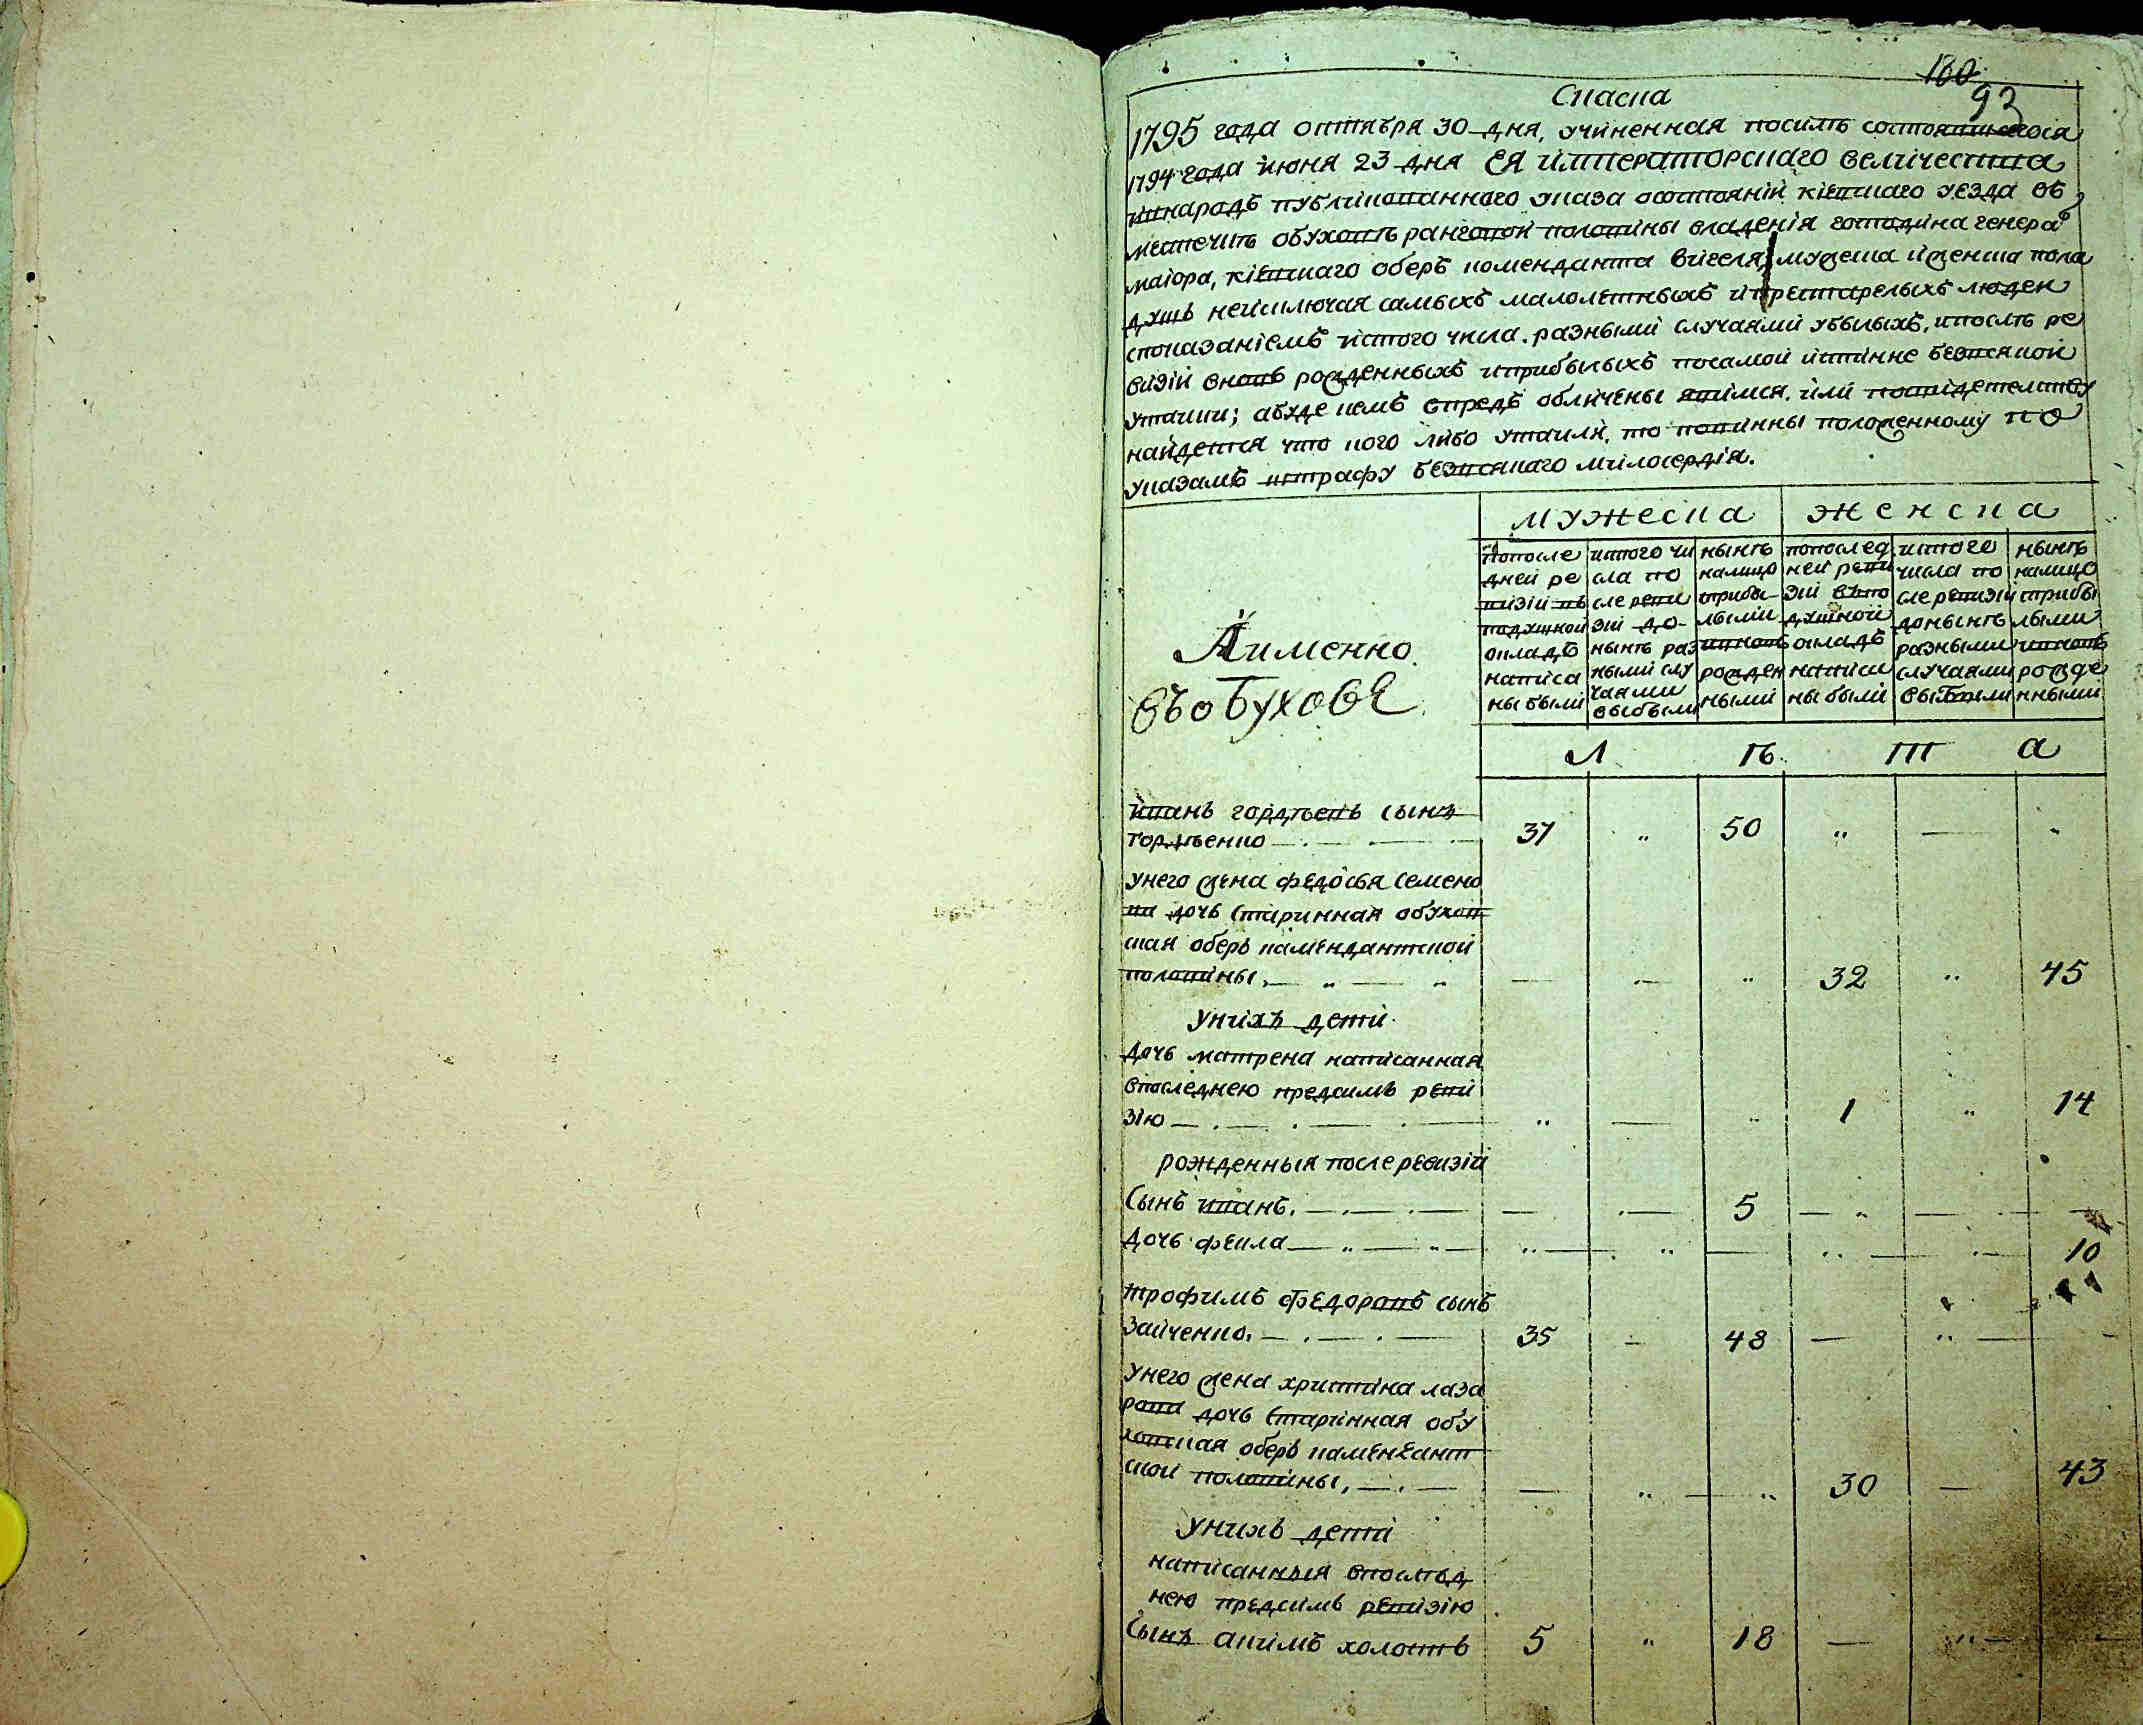 160
93
Сказка
1795 года октября 30 дня, учиненная посилѣ состоявшагося
1794 года июня 23 дня ЕЯ императорскаго величества
ивнародъ публикованного указа осостояній кіевскаго уезда въ
местечкѣ обуховѣ ранговой половины владенія господина генера
маіора, кіевскаго оберъ коменданта вигеля, мужеска иженска пола
душъ неисключая самыхъ малолетныхъ ипрестарелыхъ людей
споказаніемъ истого числа разными случаями убылыхъ, ипослѣ ре
визіи вновь рожденныхъ иприбылыхъ посамой истинне безвсякой
утайки; абуде кемъ впредь обличены явимся, или посвидетелству
найдется что кого либо утаили, то повинны положенному по
указамъ штрафу безвсякаго милосердія.
мужеска женска
Аименно
въобуховѣ
попосле дней ре визіи въ подушной окладъ написа ны были
истого чи сла по сле реви зіи до нынѣ раз ными слу чаями выбыли
нынѣ налицо сприбы лыми ивновь рожден ными
попослед ней реви зіи въпо душной окладъ написа ны были
истого числа по сле ревизіи донынѣ разными случаями выбыли
нынѣ налицо сприбы лыми ивновь рожде нными
Л ѣ т а
иванъ гордѣевъ сынъ
гордѣенко 37 50
унего жена федосья семено
ва дочь старинная обухов
ская оберъ камендантской
половины, 32 45
унихъ дети
дочь матрена написанная
впоследнею предсимъ реви
зію 1 14
рожденныя после ревизіи
Сынъ иванъ. 5
дочь фекла 10
трофимъ федоровъ сынъ
зайченко. 35 48
унего жена христина лаза
рова дочь старинная обу
ховская оберъ камендант
ской половины, 30 43
унихъ дети
написанныя впослѣд
нею предсимъ ревизію
Сынъ акимъ холостъ 5 18